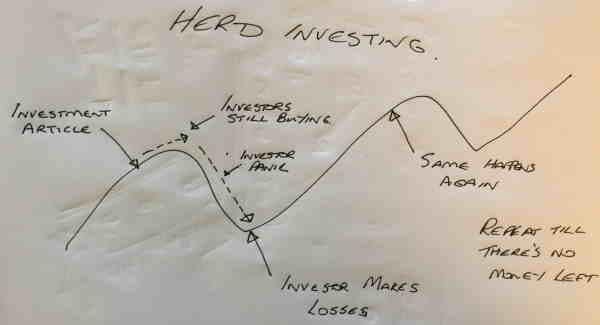 HERD INVESTING.
INVESTMENT
ARTICLE
INVESTORS
STILL BUYING
INVESTOR
PANIC
SAME HAPPENS
AGAIN
INVESTOR MAKES
LOSSES
REPEAT TILL
THERE'S NO
MONEY LEFT